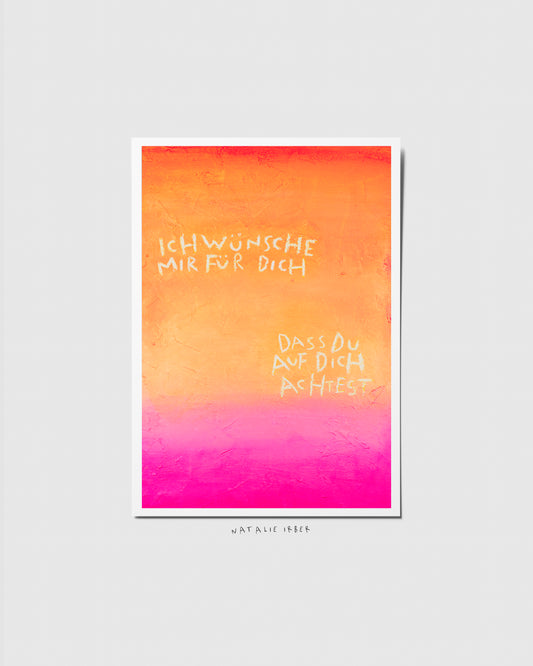 ICH WÜNSCHE
MIR FÜR DICH
DASS DU
AUF DICH
ACHTEST
NATALIE IRBER